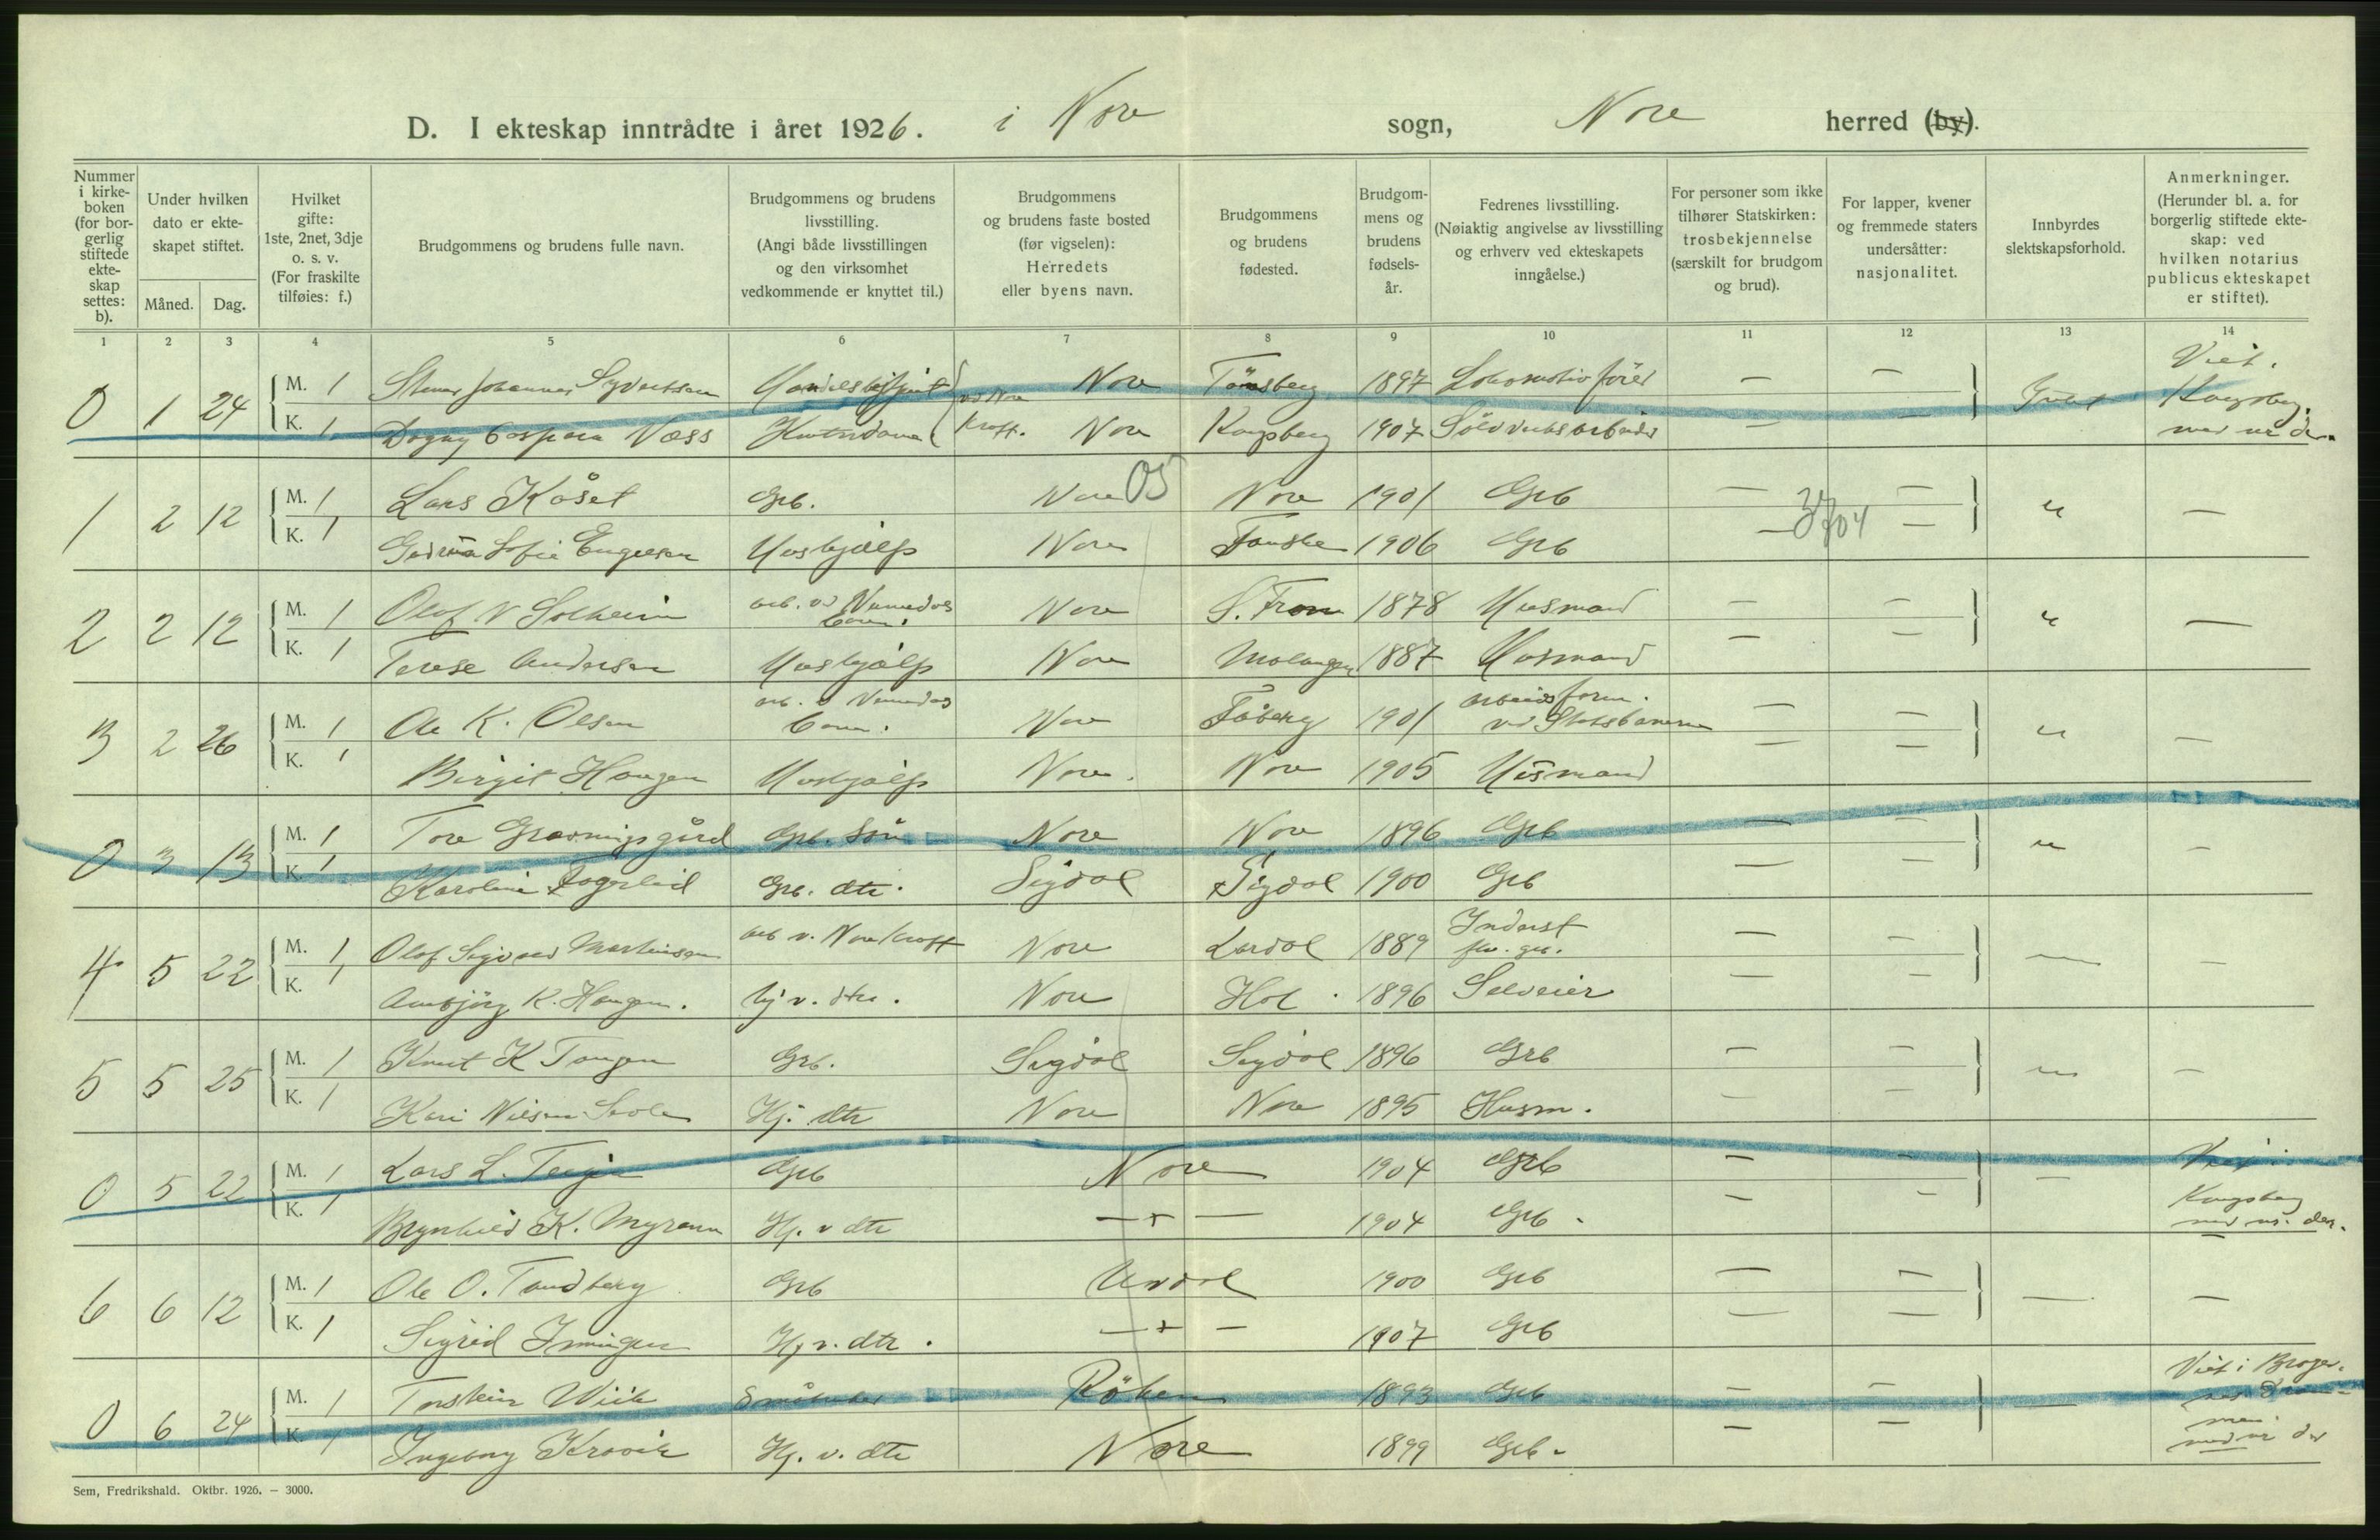 D. I ekteskap inntrådte i året 1926. i Nore sogn, Nore herred (by).
Nummer i kirkeboken (for borgerlig stiftede ekteskap settes: b).
Under hvilken dato er ekteskapet stiftet.
Måned. Dag.
Hvilket gifte: 1ste, 2net, 3dje o. s. v. (For fraskilte tilføies: f.)
Brudgommens og brudens fulle navn.
Brudgommens og brudens livsstilling. (Angi både livsstillingen og den virksomhet vedkommende er knyttet til.)
Brudgommens og brudens faste bosted (før vigselen): Herredets eller byens navn.
Brudgommens og brudens fødested.
Brudgommens og brudens fødselsår.
Fedrenes livsstilling. (Nøiaktig angivelse av livsstilling og erhverv ved ekteskapets inngåelse.)
For personer som ikke tilhører Statskirken: trosbekjennelse (særskilt for brudgom og brud).
For lapper, kvener og fremmede staters undersåtter: nasjonalitet.
Innbyrdes slektskapsforhold.
Anmerkninger. (Herunder bl. a. for borgerlig stiftede ekteskap: ved hvilken notarius publicus ekteskapet er stiftet).
1 2 3 4 5 6 7 8 9 10 11 12 13 14
0 1 24 M. 1 Johannes Nore Tönsberg 1897 Lokomotivförer — — Viet.
K. 1 Dagny Næss Kraft. Nore Kongsberg 1907 Sölvverksarbeider — — Kongsberg
1 2 12 M. 1 Lars Kåset Grb. Nore 05 Nore 1901 Grb — — " —
K. 1 Sofie Nore Fauske 1906 Grb — 704 —
2 2 12 M. 1 Olof N Solheim arb. vd Numedals Nore S. Fron 1878 Husmand — — " —
K. 1 Terese Andersen Hushjælp Nore Malangen 1887 Husmand — —
3 2 26 M. 1 Ole K. Olsen Nore Fåberg 1901 arbeidsform. vd Statsbanerne — — " —
K. 1 Birgit Haugen Hushjælp Nore. Nore 1905 Husmand — —
0 3 13 M. 1 Tore Grb. sön Nore Nore 1896 Grb — — " —
K. 1 Karoline Fagerlid Grb. dtr. Sigdal Sigdal 1900 Grb — —
4 5 22 M. 1 Olof Sigvard Martinsen arb v. Nore kraft Nore Lardal 1889 — — — —
K. 1 Ambjörg K. Haugen. Hj v. dtr. Nore Hol. 1896 Selveier — —
5 5 25 M. 1 Knut K Tangen Grb. Sigdal Sigdal 1896 Grb — — — —
K. 1 Kari Nilsen Hj. dtr Nore Nore 1895 Husm. — —
0 5 22 M. 1 Lars L. Grb Nore 1904 Grb — — — Viet i
K. 1 Brynhild K. Myrann Hj. v dtr —"— 1904 Grb. — — Kongsberg med nr. der.
6 6 12 M. 1 Ole O. Tandberg Grb Uvdal 1900 Grb — — — —
K. 1 Sigrid Hj v. dtr. —"— 1907 Grb — —
0 6 24 M. 1 Torstein Wiik Röken 1893 Grb — — — Viet i Bragernes Drammen
K. 1 Ingeborg Kravik Hj. v. dtr Nore 1899 Grb. — — med nr der
Sem, Fredrikshald. Oktbr. 1926. – 3000.